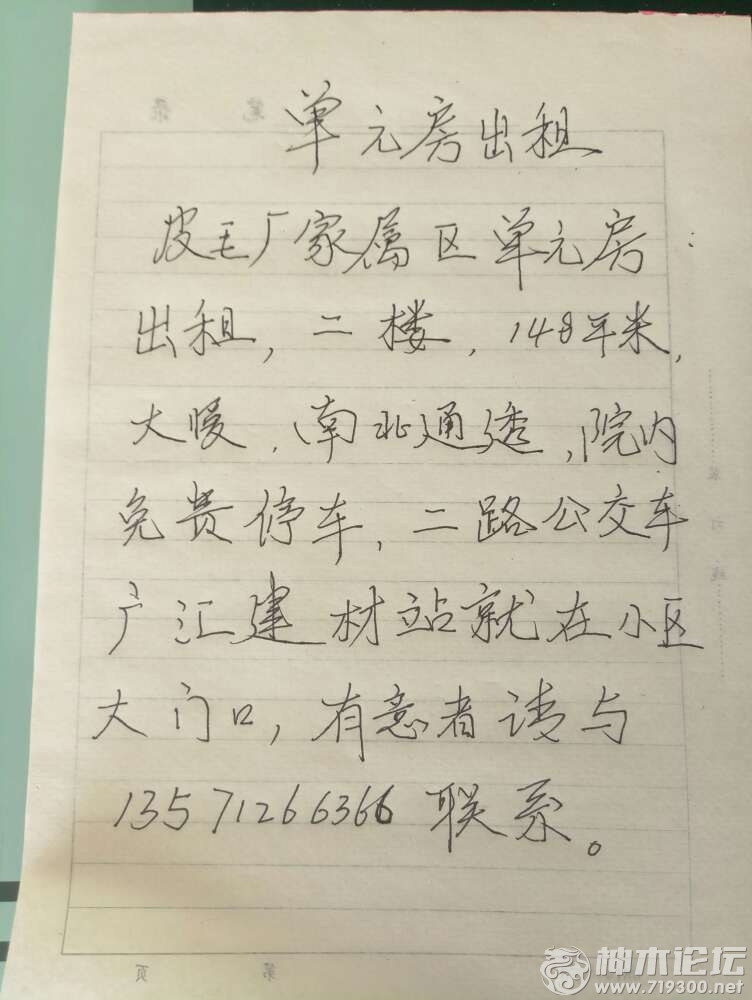 单元房出租
皮毛厂家属区单元房
出租，二楼，148平米，
大暖，南北通透，院内
免费停车，二路公交车
广汇建材站就在小区
大门口，有意者请与
13571266366联系。
第 页
神木论坛
www.719300.net